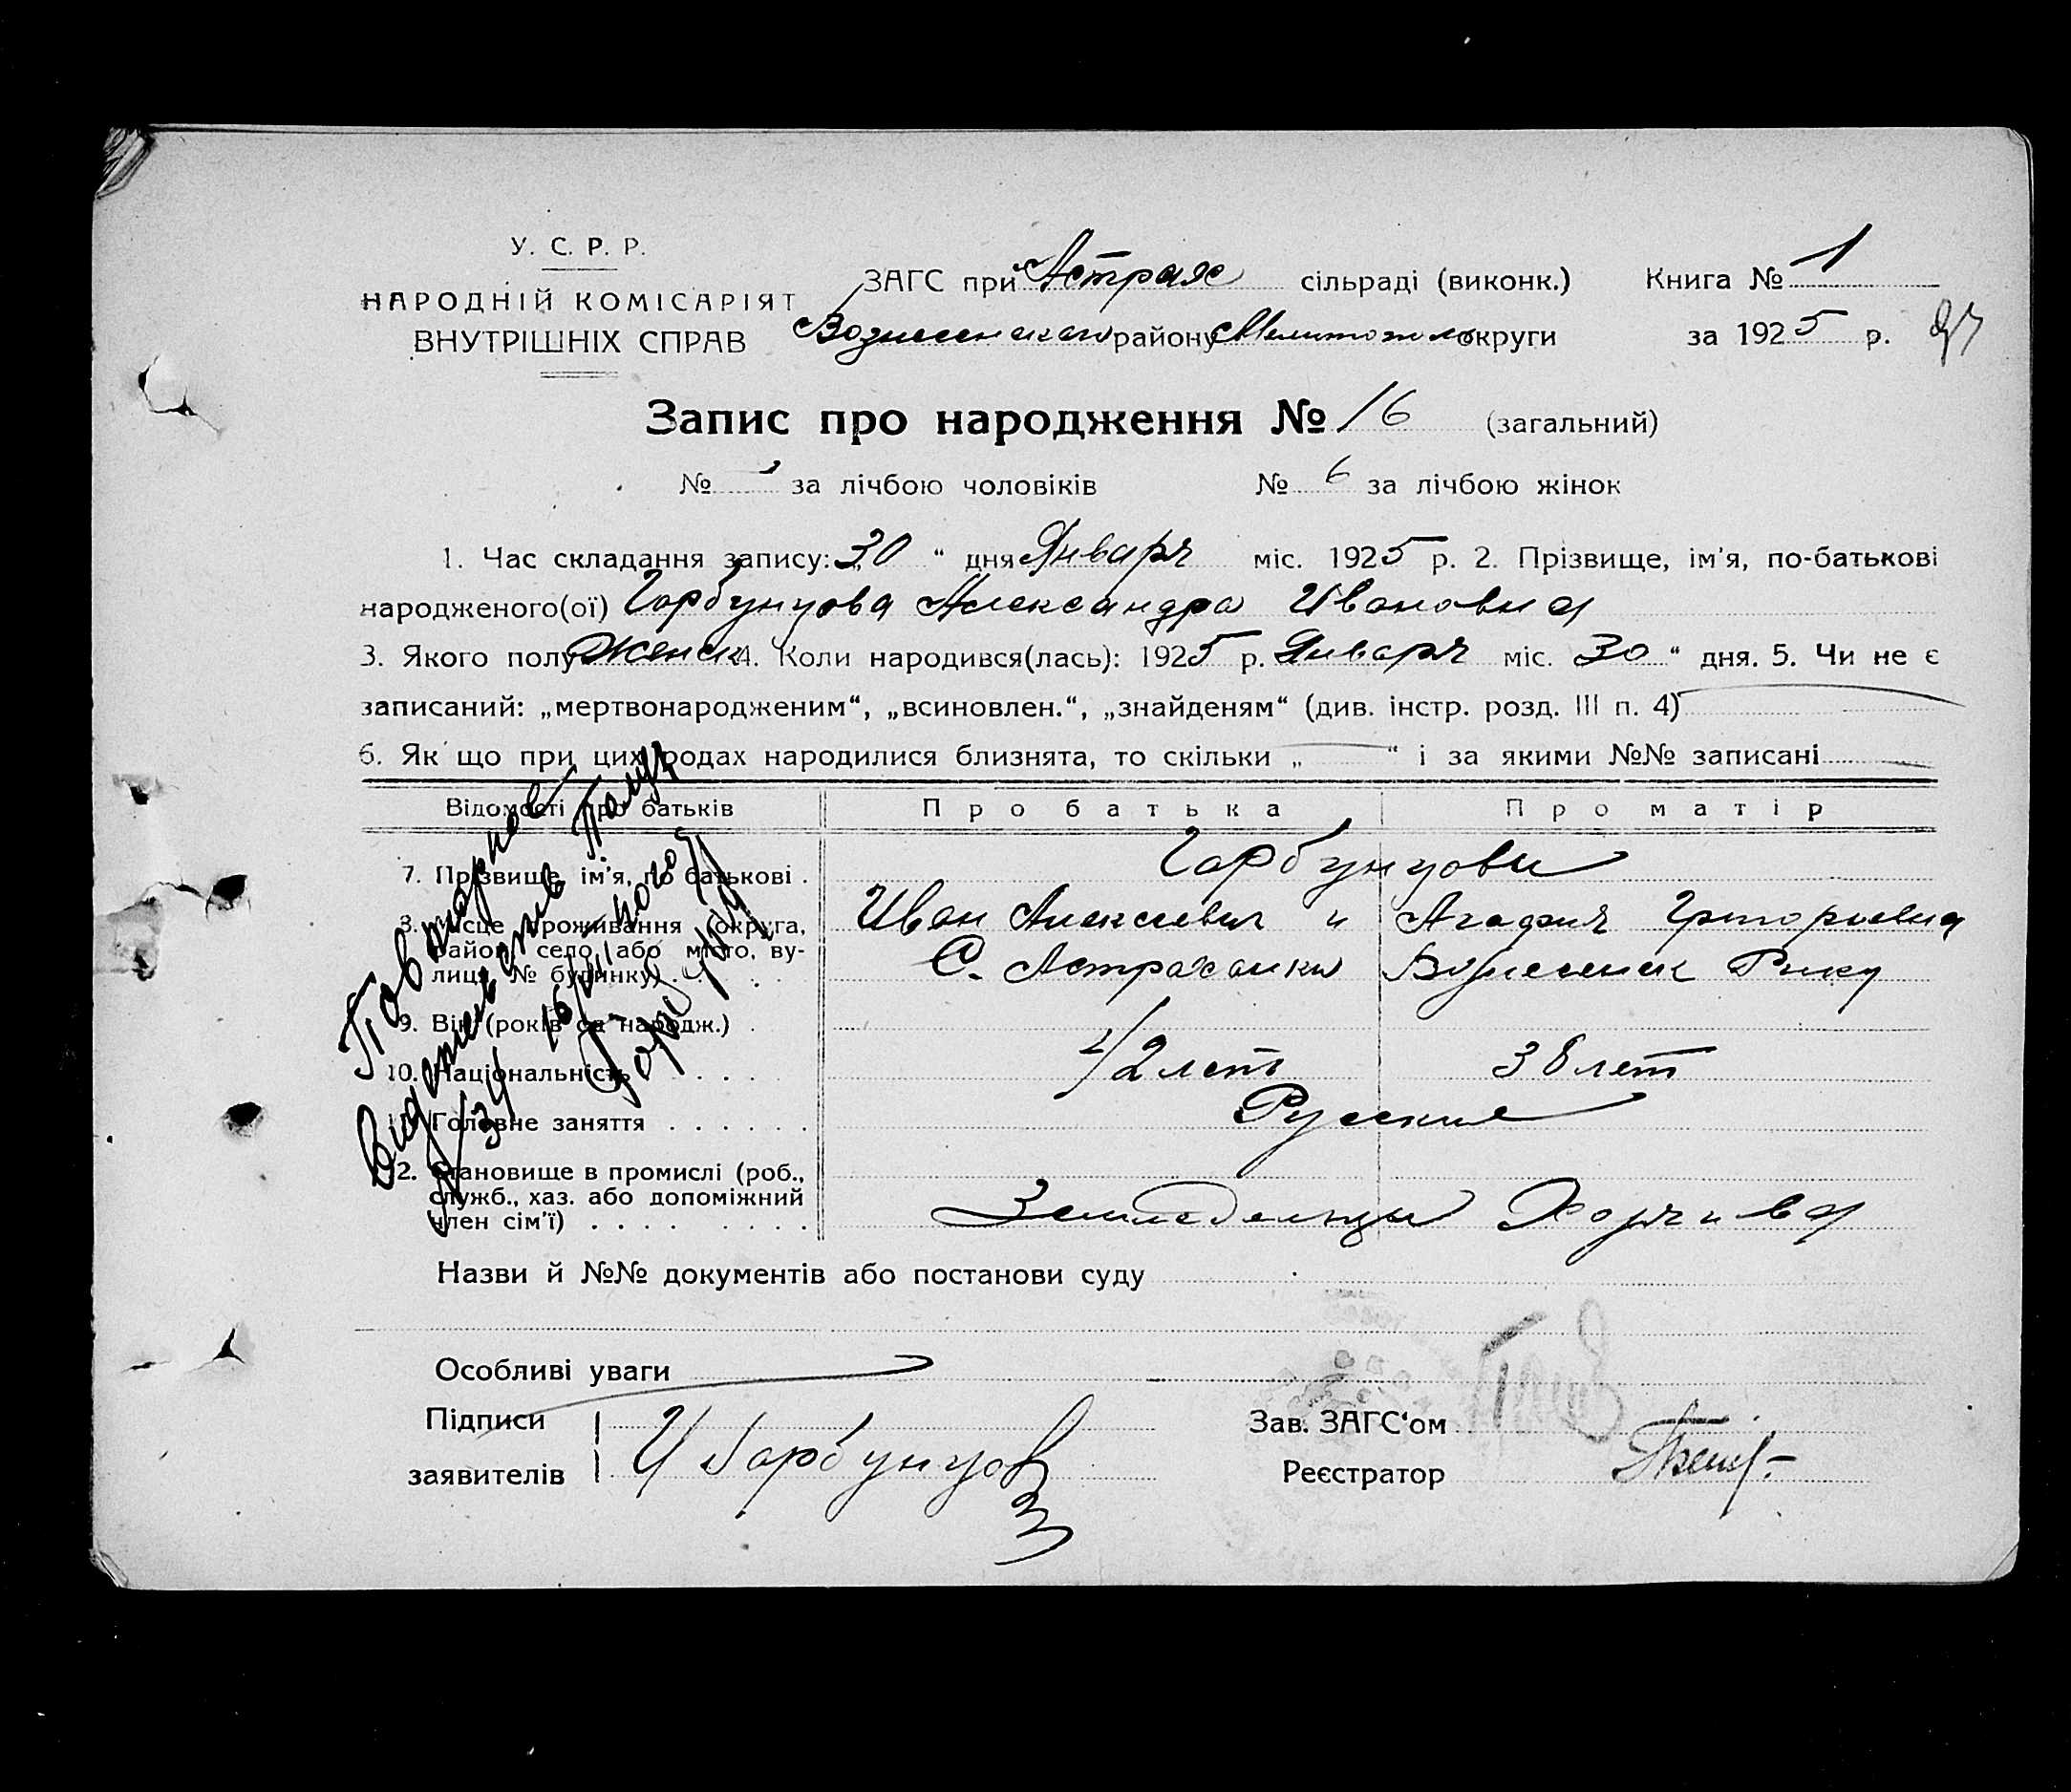 У. С. Р. Р.
НАРОДНІЙ КОМІСАРІЯТ
ВНУТРІШНІХ СПРАВ
ЗАГС при Астрах сільраді (виконк.) Книга № 1
Вознесенского району Мелитопол округи за 1925 р. 97
Запис про народження № 16 (загальний)
№ за лічбою чоловіків № 6 за лічбою жінок
1. Час складання запису: „30“ дня Января міс. 1925 р. 2. Прізвище, ім'я, по-батькові
народженого(ої) Горбунцова Александра Ивановна
3. Якого полу Женск 4. Коли народився(лась): 1925 р. Января міс. 30“ дня. 5. Чи не є
записаний: „мертвонародженим“, „всиновлен.“, „знайденям“ (див. інстр. розд. III п. 4)
6. Як що при цих родах народилися близнята, то скільки „ “ і за якими №№ записані
Відомості про батьків Про батька Про матір
7. Прізвище, ім'я, по батькові . Горбунцовы
8. Місце проживання (округа, Иван Алексеевич и Агафия Григорьевна
район, село або місто, ву-
лиця № будинку) . . . С. Астраханки Вознесенск Рику
9. Вік (років од народж.) .
10. Національність . . . . 42 лет 38 лет
11. Головне заняття . . . . . . Русские
12. Становище в промислі (роб.,
служб., хаз. або допоміжний
член сім'ї) . . . . . . . . Земледельцы Хозяева
Повторное
Видано
16/VI
Горбунцу
Назви й №№ документів або постанови суду
Особливі уваги
Підписи Зав. ЗАГС'ом
заявителів И Горбунцов Реєстратор